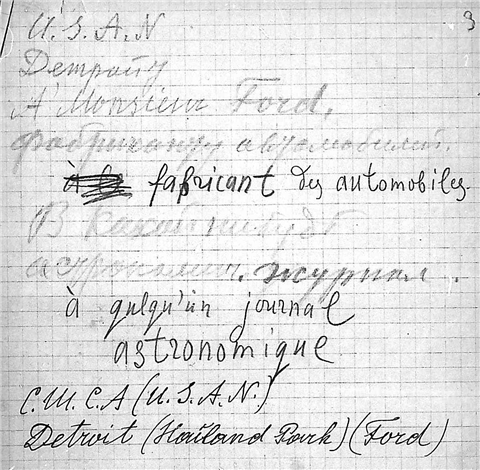 3
U. S. A. N
Детройту
A Monsieur Ford.
Фабриканту автомобилей.
fabricant des automobiles.
В какой нибудь
астрономич. журнал.
à quelqu'un journal
astronomique
С.Ш.С.А (U.S.A.N.)
Detroit (Hailand Park) (Ford)